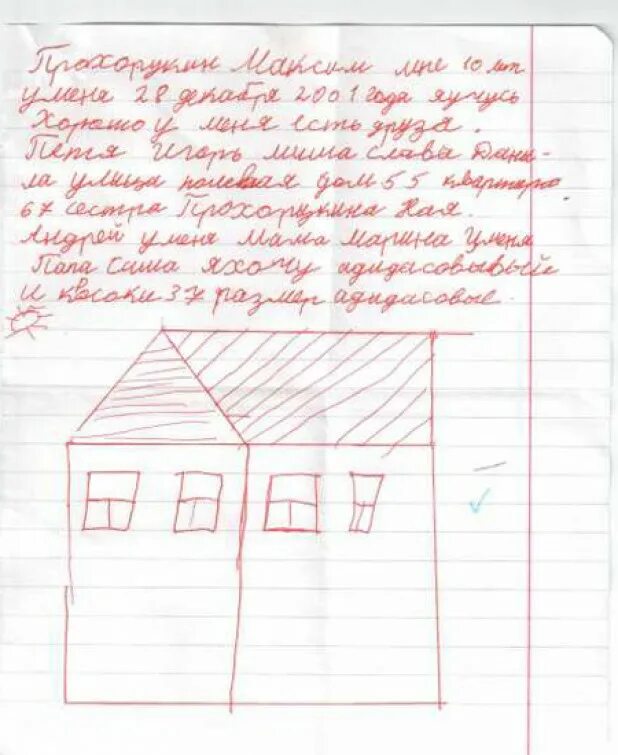 Прохорукин Максим мне 10 лет
уменя 28 декабря 2001 года яучусь
Хорошо у меня есть друза.
Петя Игорь миша слава Дани-
ла улица полевая дом 55 квартира
67 сестра Прохорукина Ная.
Андрей уменя Мама Марина Уменя
Папа Саша яхочу адидасовывый
и кросоки 37 размер адидасовые.